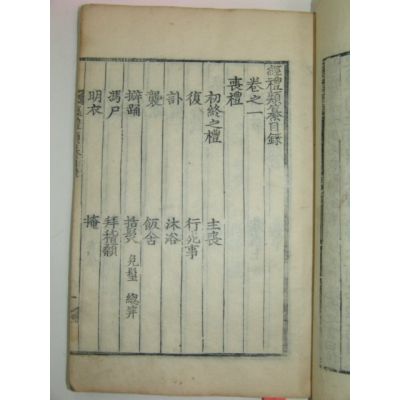 經禮類纂目錄
卷之一
喪禮
初終之禮 主喪
復 行死事
訃 沐浴
襲 飯含
擗踊 括髮 免髽 總笄
馮尸 拜稽顙
明衣 掩